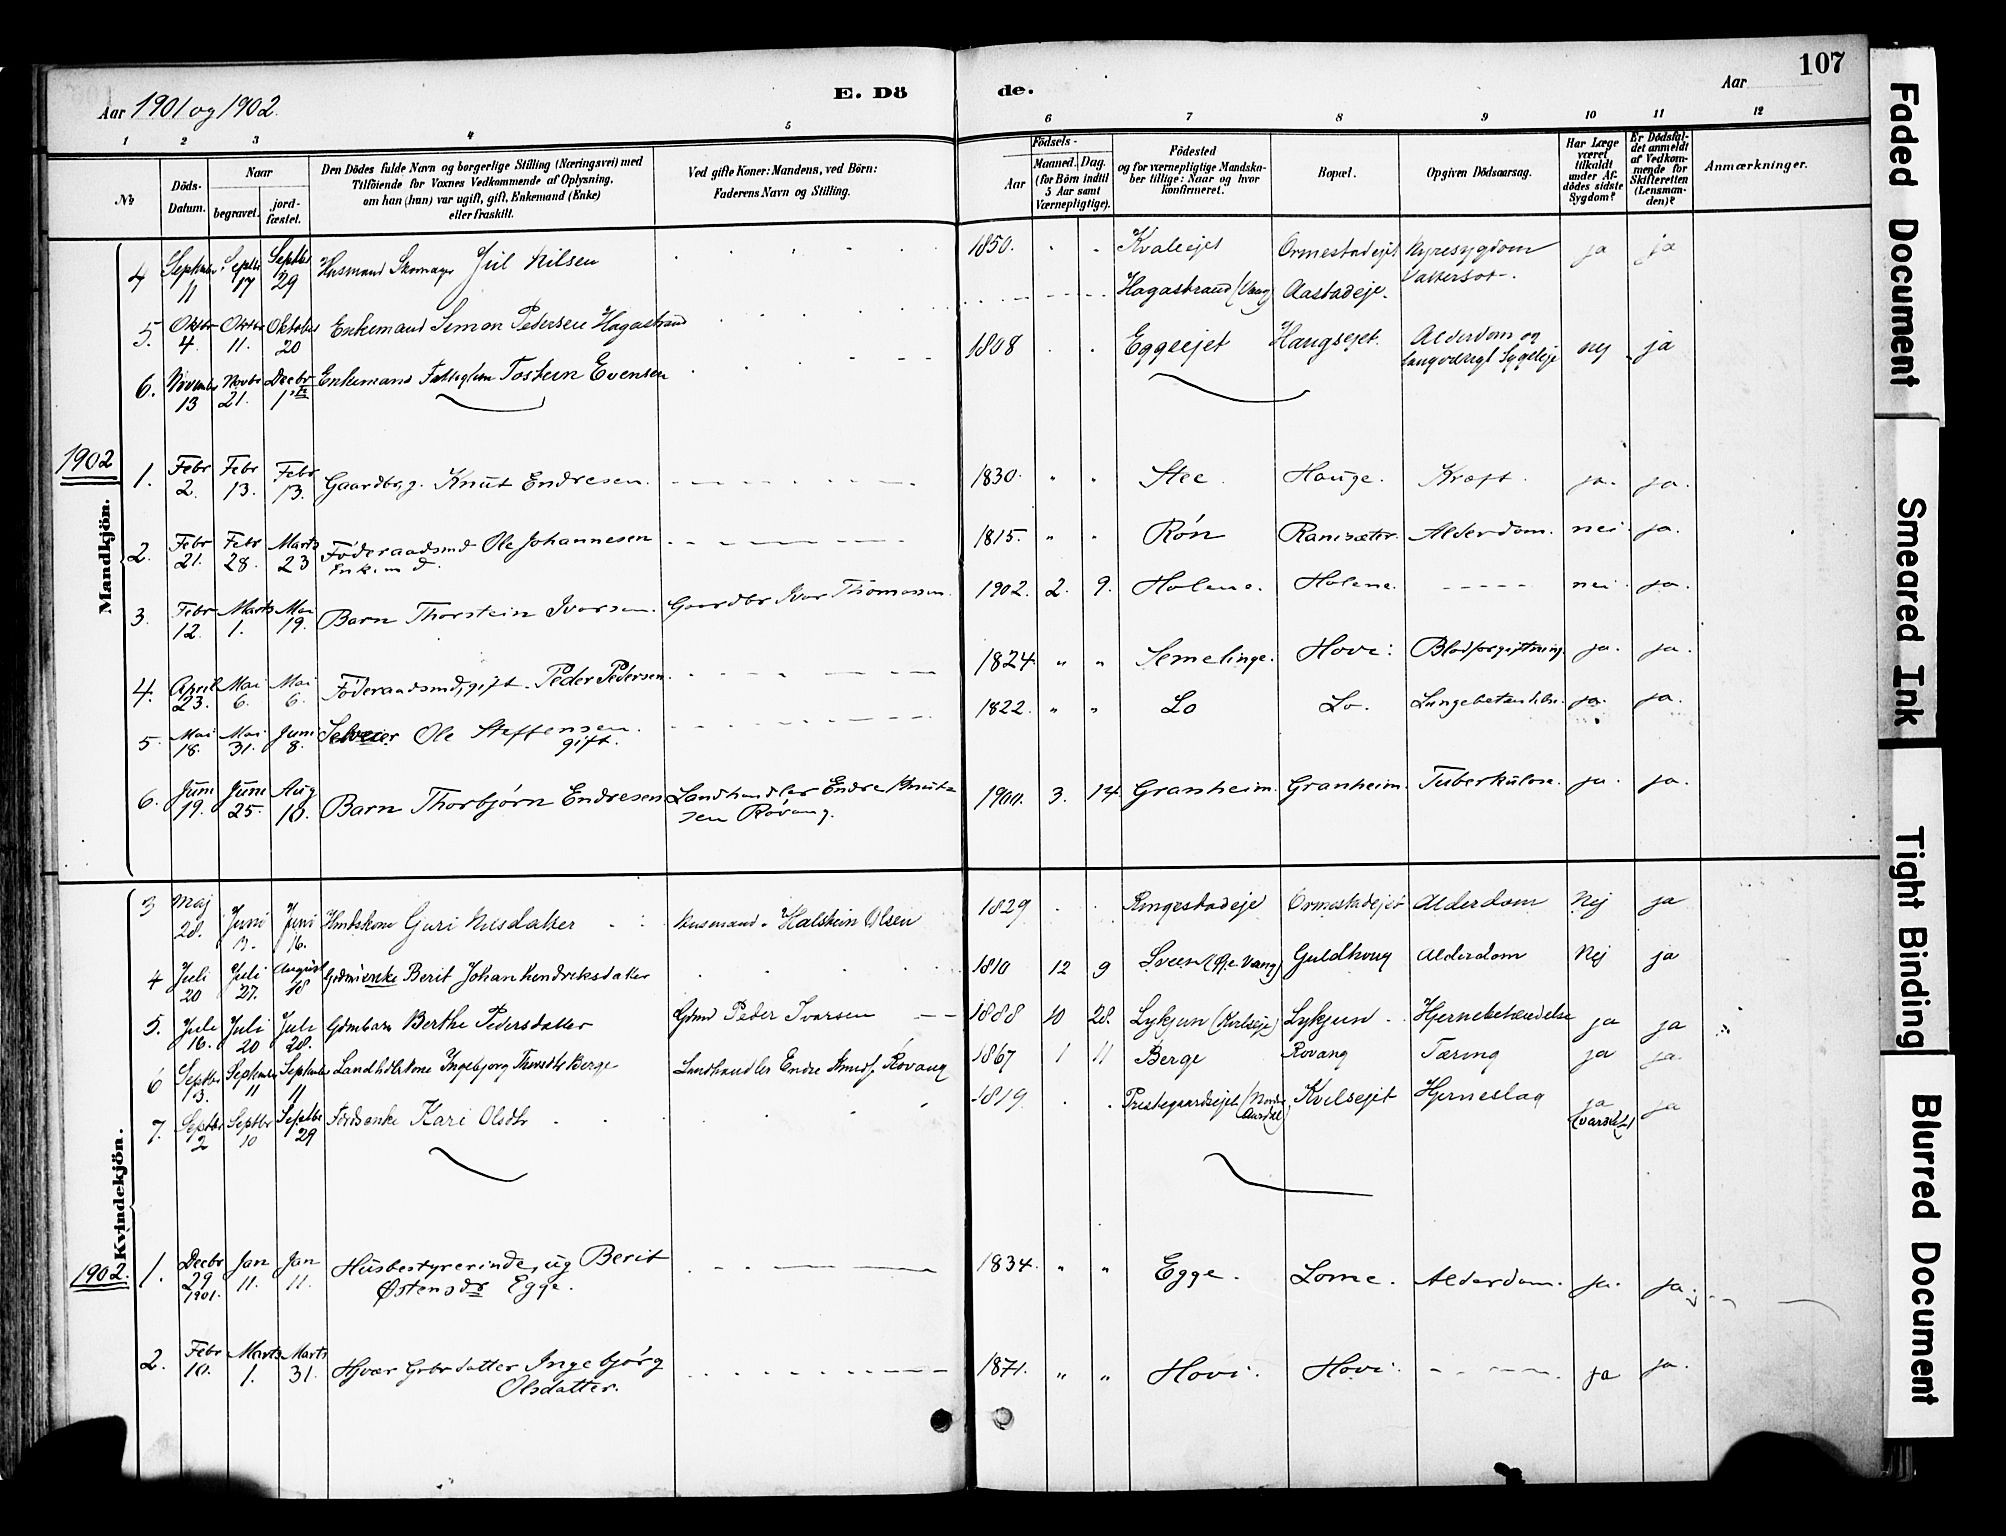 107
Aar 1901 og 1902.
E. Dö de.
Aar
1 2 3 4 5 6 7 8 9 10 11 12
No
Döds-Datum.
Naar
begravet.
jord-fæstet.
Den Dödes fulde Navn og borgerlige Stilling (Næringsvei) med
Tilföiende for Voxnes Vedkommende af Oplysning,
om han (hun) var ugift, gift, Enkemand (Enke)
eller fraskilt.
Ved gifte Koner: Mandens, ved Börn:
Faderens Navn og Stilling.
Födsels-
Aar
Maaned. Dag.
(for Börn indtil
5 Aar samt
Værnepligtige).
Födested
og for værnepligtige Mandska-
ber tillige: Naar og hvor
konfirmeret.
Bopæl.
Opgiven Dödsaarsag.
Har Læge
været
tilkaldt
under Af-
dödes sidste
Sygdom?
Er Dödsfal-
det anmeldt
af Vedkom-
mende for
Skifteretten
(Lensman-
den)?
Anmærkninger.
4 Septbr 11 Septbr 17 Septbr 29 Husmand Skomager Jul Nilsen 1850. Kvaleejet Ormestadejet Nyresygdom Vattersot ja ja
5. Oktbr 4. Oktbr 11. Oktober 20 Enkemand Simon Pedersen Hagastrand Hagastrand (Vang) Aastadeje.
6. Novembr 13 Novbr 21. Decbr 1ste Enkemand Torstein Evensen 1808 Eggeejet Haugsejet. Alderdom og langvarigt Sygeleje nej ja
1902
Mandkjön.
1. Febr 2. Febr 13. Febr 13. Gaardbrg. Knut Endresen. 1830 " " Stee. Hauge. Kræft. ja. ja.
2. Febr 21. Febr 28. Marts 23 Föderaadsmd Ole Johannesen Enkemd. 1815. " " Røn Ranisæter. Alderdom. nei ja.
3. Febr 12. Marts 1. Mai 19. Barn Thorstein Ivarsen. Gaardbr Ivar Thomassen 1902. 2. 9. Holene. Holene. nei ja.
4. April 23. Mai 6. Mai 6. Föderaadsmd, gift. Peder Pedersen. 1824. " " Semelinge. Hovi. Blodforgiftning ja. ja.
5. Mai 18. Mai 31. Juni 8. Selveier Ole Steffensen. gift. 1822. " " Lo Lo. Lungebetændelse. ja. ja.
6. Juni 19. Juni 25. Aug 10. Barn Thorbjörn Endresen Landhandler Endre Knutsen Røvang. 1900. 3. 14. Granheim. Granheim. Tuberkulose. ja. ja.
Kvindekjön.
3 Maj 28. Juni Juni 16. Hmdskone Guri Nilsdatter Husmand Halstein Olsen 1829 Ringestadeje Ormestadejet Alderdom Nej ja
4 Juli 20 Juli 27. August 18 Gdmienke Berit Johan Hendriksdatter 1810 12 9 Sveen ( Vang) Guldhoug Alderdom Nej ja
5. Juli 16. Juli 20 Juli 28. Gdmbarn Berthe Pedersdatter Gdmd Peder Ivarsen 1888 10 28. Lykjun (Kvilseje) Lykjun Hjernebetændelse ja ja
6 Septbr 3. Septembr 11 Septembr 11 Landhdlskone Ingebjorg Berge Landhandler Endre Knuds. Rovang 1867 1 11 Berge Rovang Tæring ja ja.
7. Septbr 2 Septbr 10 Septbr 29 Fördsenke Kari Olsdtr 1819. Præstegaardsejet (Nordre Aurdal) Kvilsejet Hjerneslag ja ja
1902. 1. Decbr 29 1901. Jan 11. Jan 11. Husbestyrerinde, ug Berit Østensdr Egge. 1834. " " Egge. Lome. Alderdom. ja. ja.
2. Febr 10. Marts 1. Marts 31. Gbr datter Ingebjörg Olsdatter. 1871. " " Hovi. Hovi. ja ja.
Faded Document
Smeared Ink
Tight Binding
Blurred Document